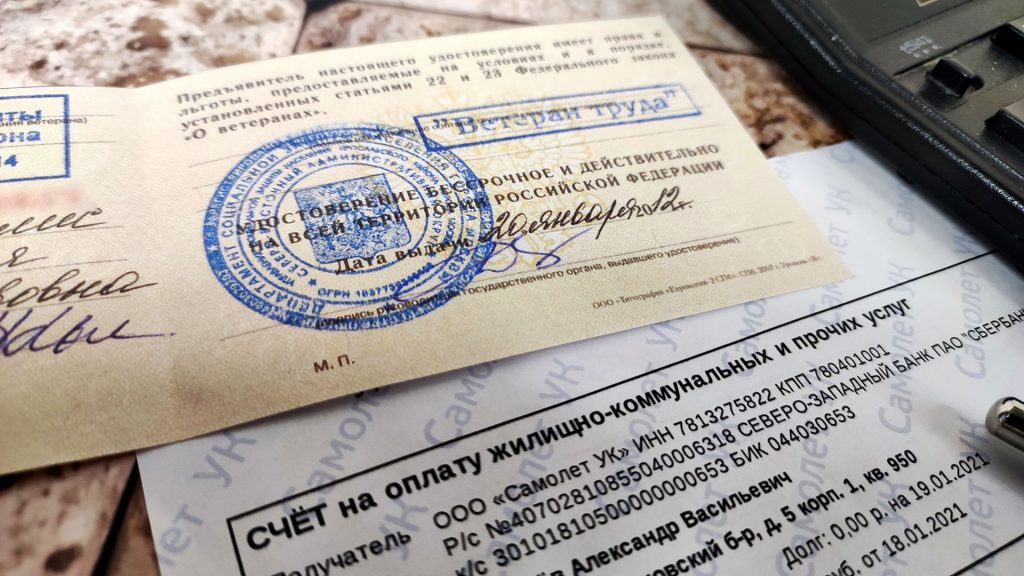 Предъявитель настоящего удостоверения имеет права и
льготы, предоставляемые на условиях и в порядке,
установленных статьями 22 и 23 Федерального закона
«О ветеранах».
"Ветеран труда"
УДОСТОВЕРЕНИЕ БЕССРОЧНОЕ И ДЕЙСТВИТЕЛЬНО
НА ВСЕЙ ТЕРРИТОРИИ РОССИЙСКОЙ ФЕДЕРАЦИИ
Дата выдачи 20 января 2012 г.
(подпись руководителя государственного органа, выдавшего удостоверение)
М. П.
СЧЁТ на оплату жилищно-коммунальных и прочих услуг
Получатель
ООО «Самолет УК» ИНН 7813275822 КПП 780401001
Р/с №40702810855040006318 СЕВЕРО-ЗАПАДНЫЙ БАНК ПАО "СБЕРБАН
к/с 30101810500000000653 БИК 044030653
Александр Васильевич
овский б-р, д. 5 корп. 1, кв. 950
Долг: 0,00 р. на 19.01.2021
уб. от 18.01.2021
Самолет УК